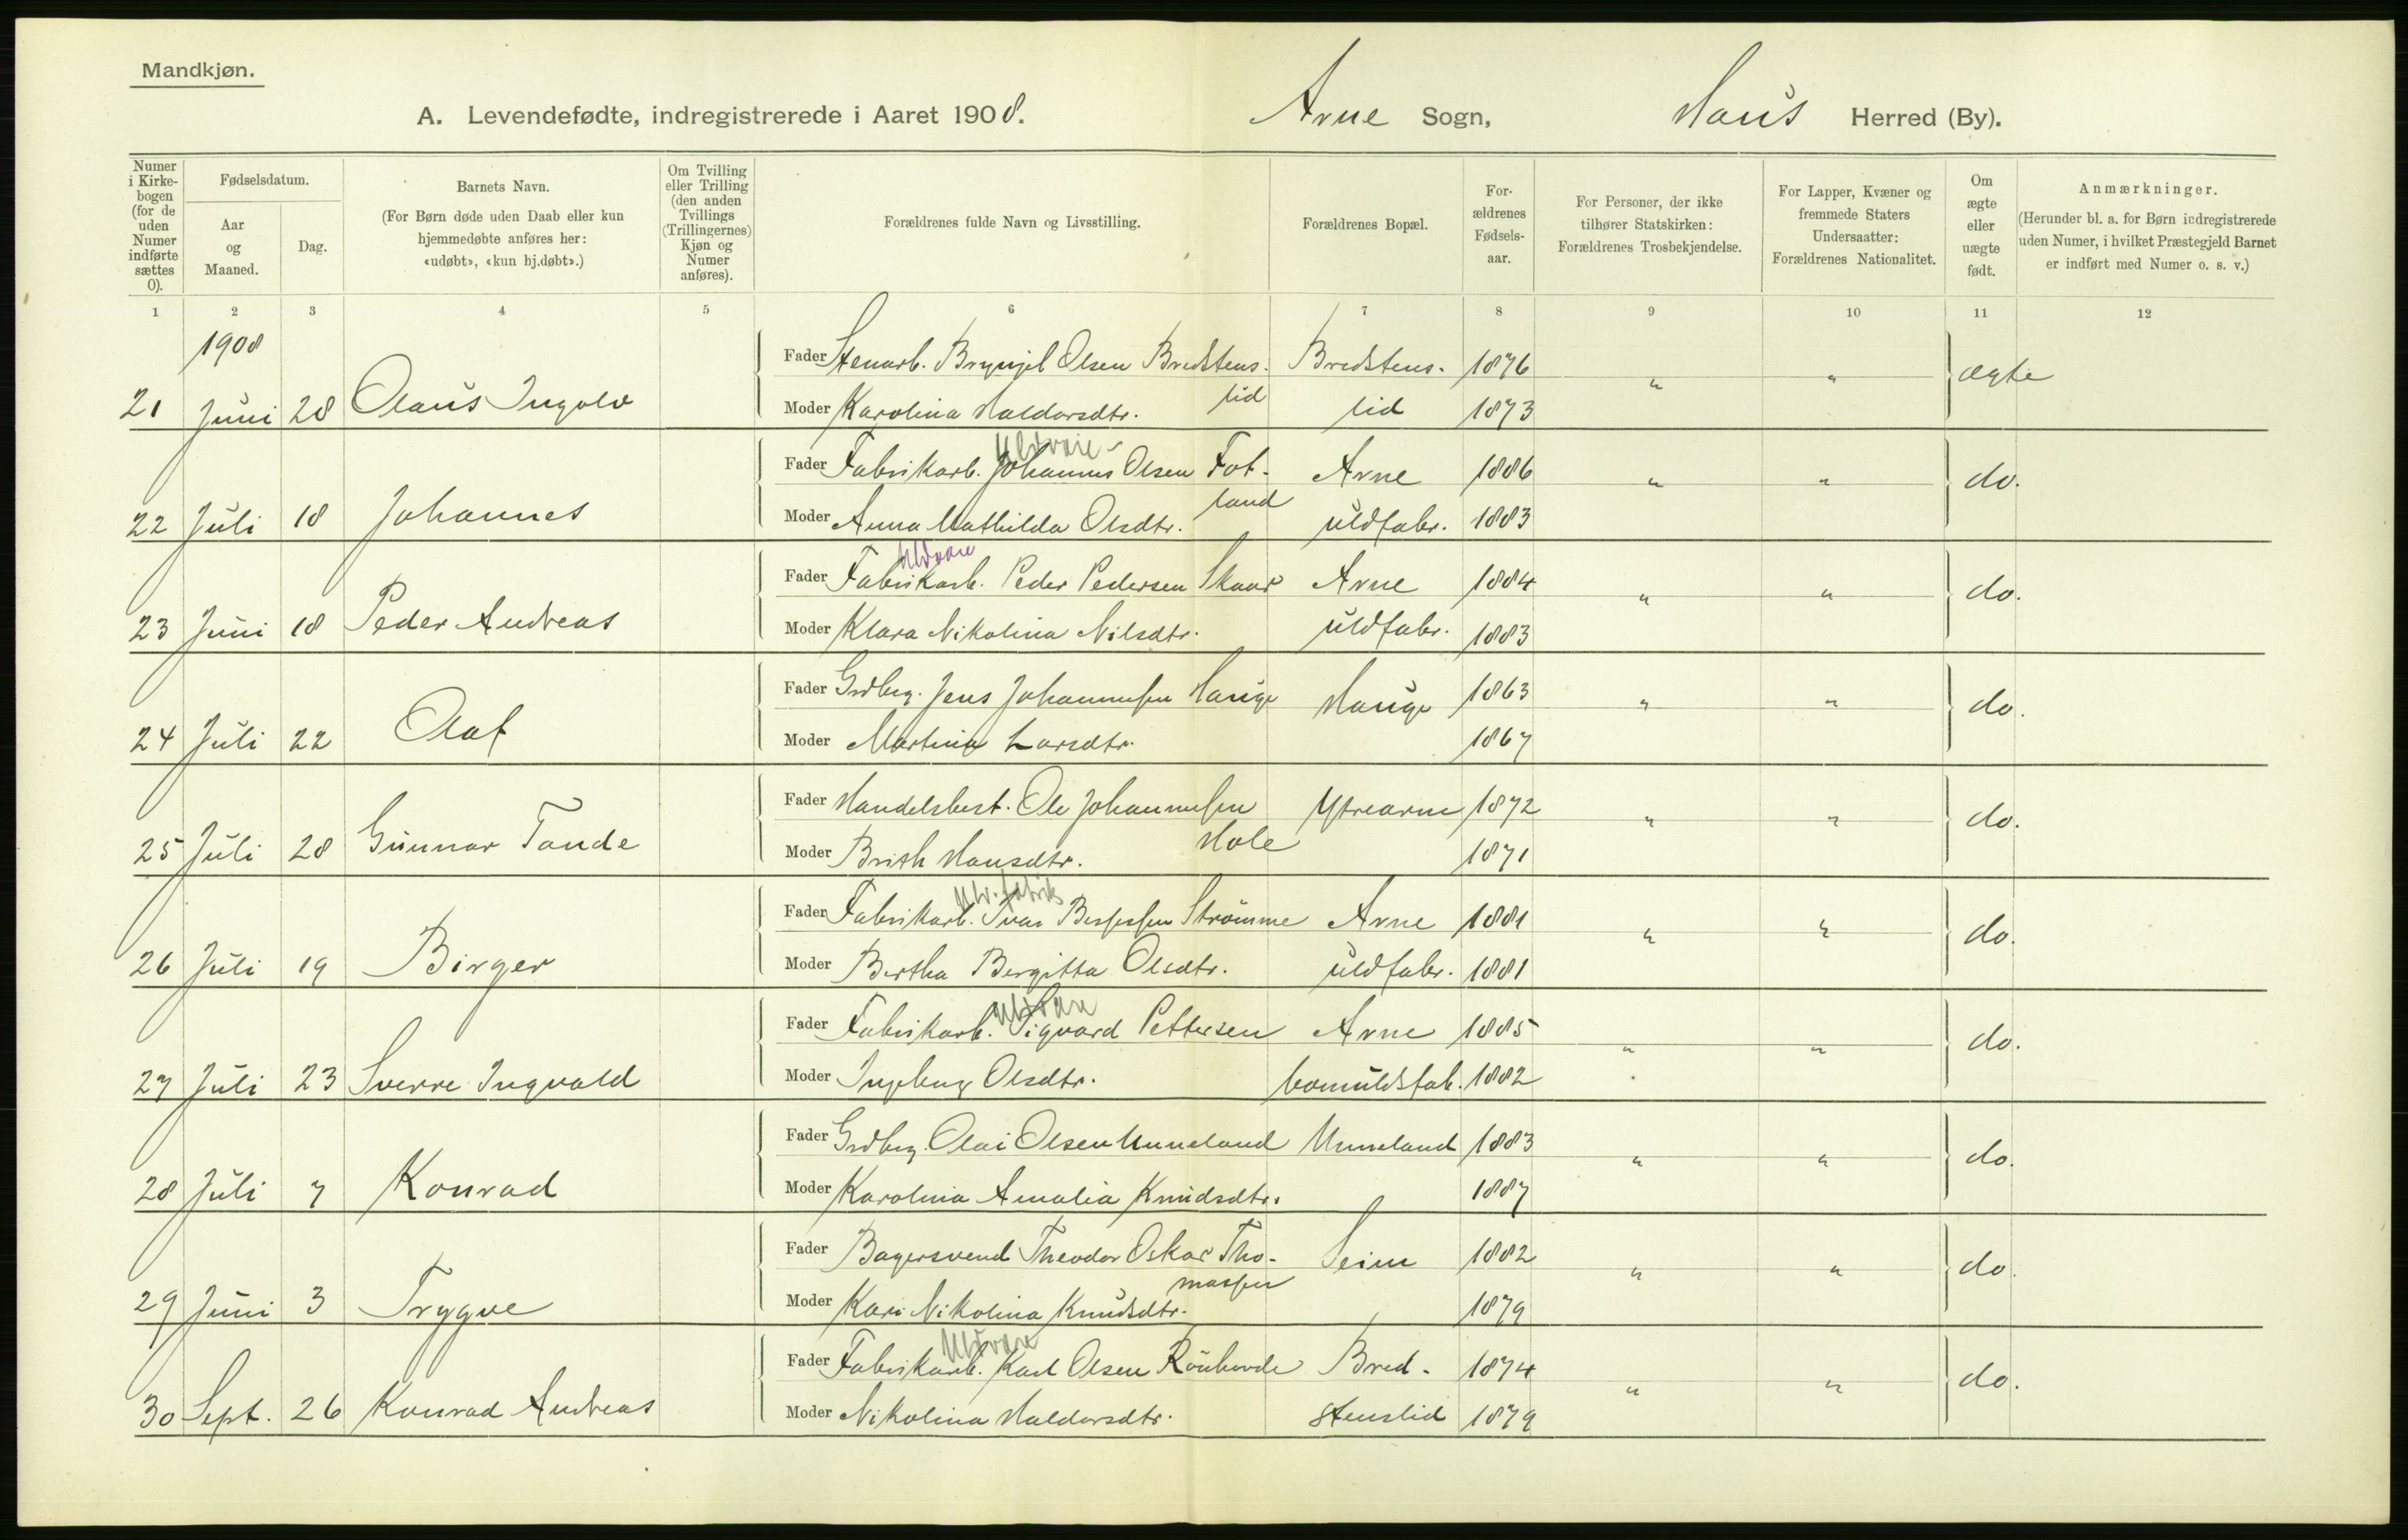 Mandkjøn.
A. Levendefødte, indregistrerede i Aaret 1908. Arne Sogn, Haus Herred (By).
Numer i Kirkebogen (for de uden Numer indførte sættes 0).
Fødselsdatum.
Aar og Maaned.
Dag.
Barnets Navn.
(For Børn døde uden Daab eller kun hjemmedøbte anføres her: «udøbt», «kun hj.døbt».)
Om Tvilling eller Trilling (den anden Tvillings (Trillingernes) Kjøn og Numer anføres).
Forældrenes fulde Navn og Livsstilling.
Forældrenes Bopæl.
Forældrenes Fødselsaar.
For Personer, der ikke tilhører Statskirken: Forældrenes Trosbekjendelse.
For Lapper, Kvæner og fremmede Staters Undersaatter: Forældrenes Nationalitet.
Om ægte eller uægte født.
Anmærkninger.
(Herunder bl. a. for Børn indregistrerede uden Numer, i hvilket Præstegjeld Barnet er indført med Numer o. s. v.)
1 2 3 4 5 6 7 8 9 10 11 12
1908
Fader Stenarb. Brynjel Olsen Bredstens- Bredstens- 1876 " " ægte
21 Juni 28 Olaus Ingolv Moder Karolina Haldorsdtr. lid lid 1873
Uldvare
Fader Fabrikarb. Johannes Olsen Fot- Arne 1886 " " do.
land
22 Juli 18 Johannes Moder Anna Mathilda Olsdtr. uldfabr. 1883
Uldvare
Fader Fabrikarb. Peder Pedersen Skaar Arne 1884 " " do.
23 Juni 18 Peder Andreas Moder Klara Nikolina Nilsdtr. uldfabr. 1883
Fader Grdbrg. Jens Johannessen Hauge Hauge 1863 " " do.
24 Juli 22 Olaf Moder Martinia Larsdtr. 1867
Fader Handelsbest. Ole Johannessen Ytrearne 1872 " " do.
Hole
25 Juli 28 Gunnar Tande Moder Brith Hansdtr. 1871
Ulv. fabrik
Fader Fabrikarb. Ivar Bessesen Strömme Arne 1881 " " do.
26 Juli 19 Birger Moder Bertha Bergitta Olsdtr. uldfabr. 1881
Uldvare
Fader Fabrikarb. Sigvard Pettersen Arne 1885 " " do.
27 Juli 23 Sverre Ingvald Moder Ingeborg Olsdtr. bomuldsfab. 1882
Fader Grdbrg. Olai Olsen Unneland Unneland 1883 " " do.
28 Juli 7 Konrad Moder Karolina Amalia Knudsdtr. 1887
Fader Bagersvend Theodor Oskar Tho- Seim 1882 " " do.
massen
29 Juni 3 Trygve Moder Kari Nikolina Knudsdtr. 1879
Uldvare
Fader Fabrikarb. Karl Olsen Rönhovde Bred- 1874 " " do.
30 Sept. 26 Konrad Andreas Moder Nikolina Haldorsdtr. stenslid 1879